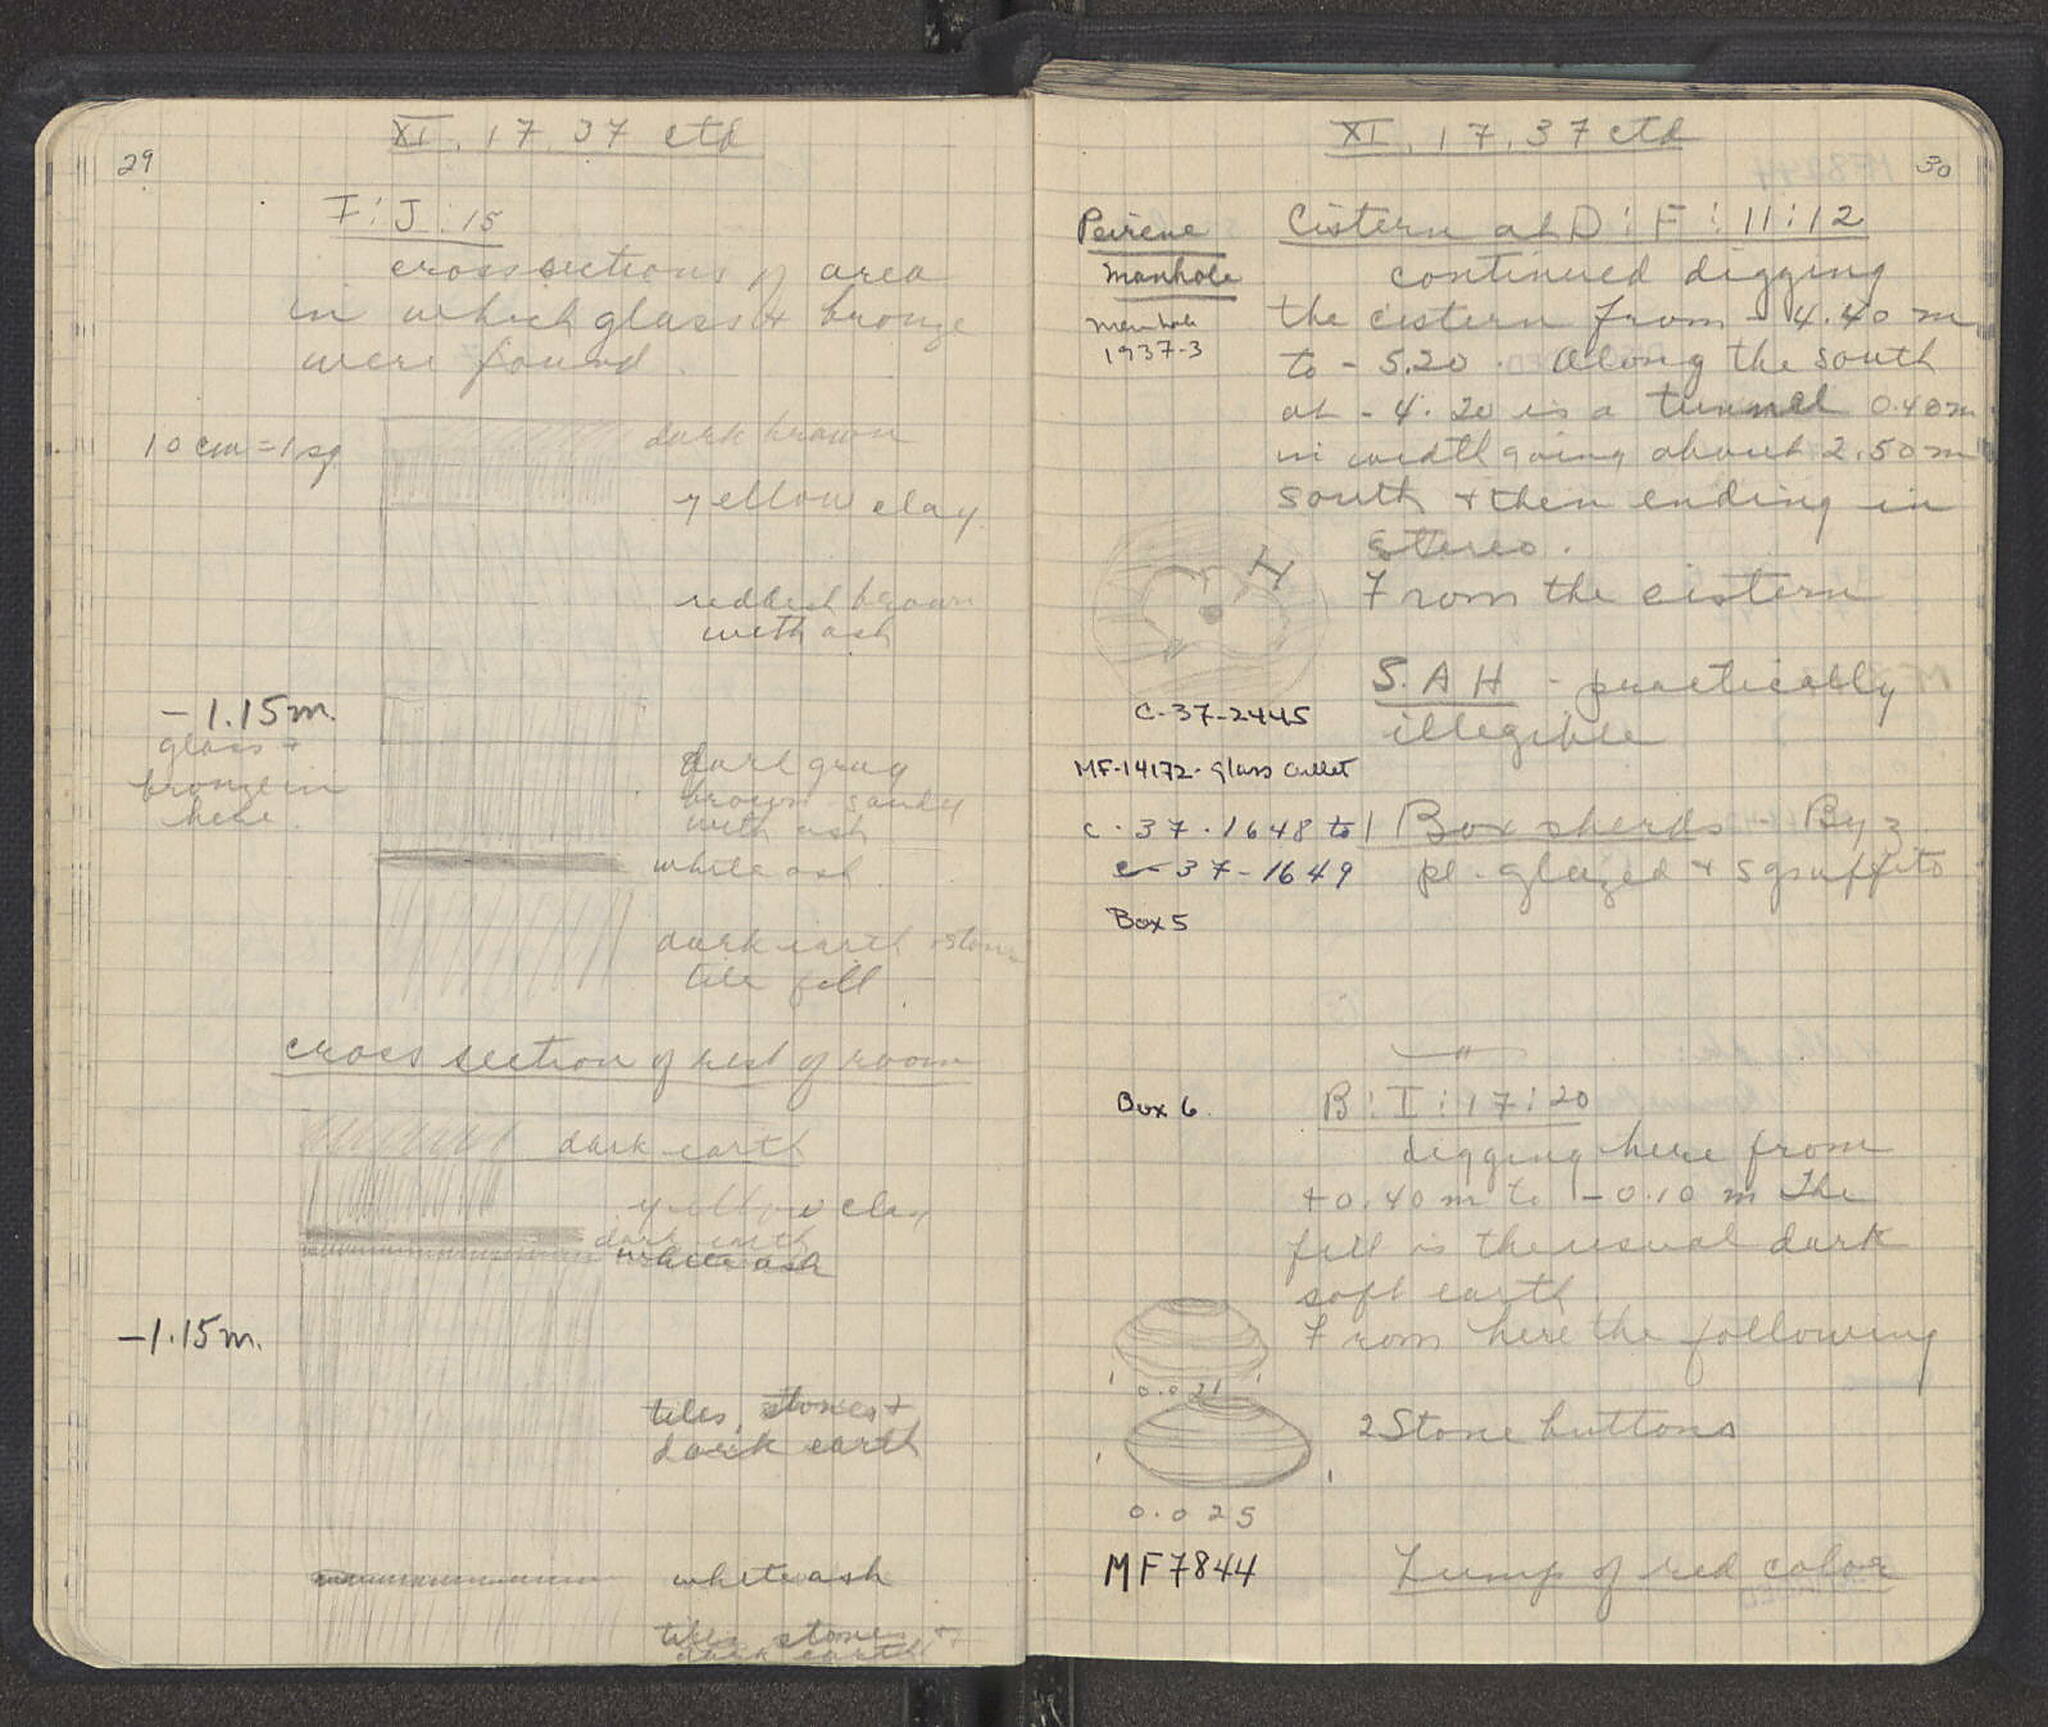 29
XI. 17. 37 ctd
I : J : 15
cross sections of area
in which glass & bronze
were found.
10 cm = 1 sq
dark brown
yellow clay
reddish brown
with ash
-1.15 m.
glass &
bronze in
here.
dark gray
brown sandy
with ash
white ash
dark earth stone
tile fill
cross section of rest of room
dark earth
yellow clay
dark earth
white ash
-1.15 m.
tiles, stones +
dark earth
white ash
tiles stones +
dark earth
XI. 17. 37 ctd
30
Peirene
Manhole
Manhole
1937-3
Cistern at D : F : 11 : 12
continued digging
the cistern from - 4.40 m
to - 5.20. Along the south
at - 4.20 is a tunnel 0.40 m
in width going about 2.50 m
south + then ending in
stereo.
From the cistern
H
C-37-2445
S. A H - practically
illegible
MF-14172- glass cullet
C. 37. 1648 to
C-37-1649
1 Box sherds - Byz
pl. glazed + sgraffito
Box 5
Box 6
B : I : 17 : 20
digging here from
+0.40 m to -0.10 m The
fill is the usual dark
soft earth
From here the following
0.021
2 Stone buttons
0.025
MF7844
Lump of red color